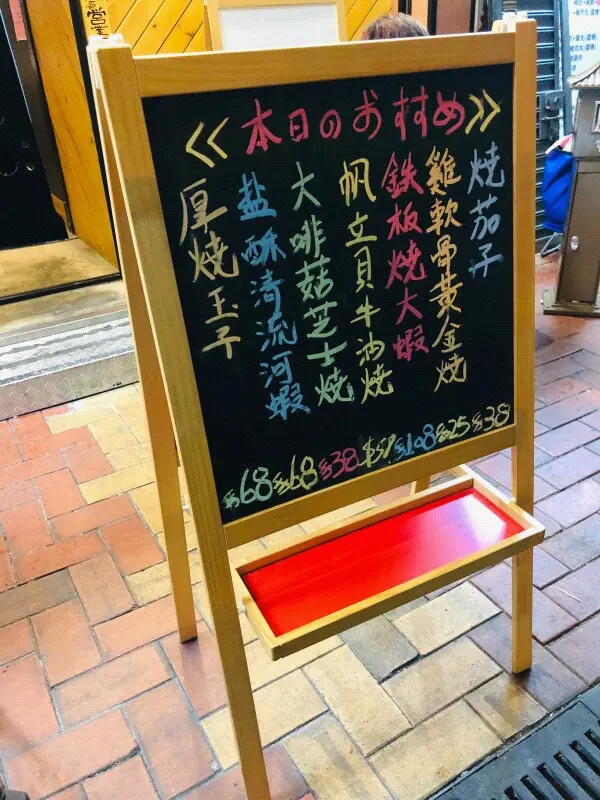 << 本日のおすすめ >>
焼茄子
雞軟骨黄金焼
鉄板焼大蝦
帆立貝牛油焼
大啡菇芝士焼
盐酥清流河蝦
厚焼玉子
$68 $68 $38 $108 $25 $38
営業